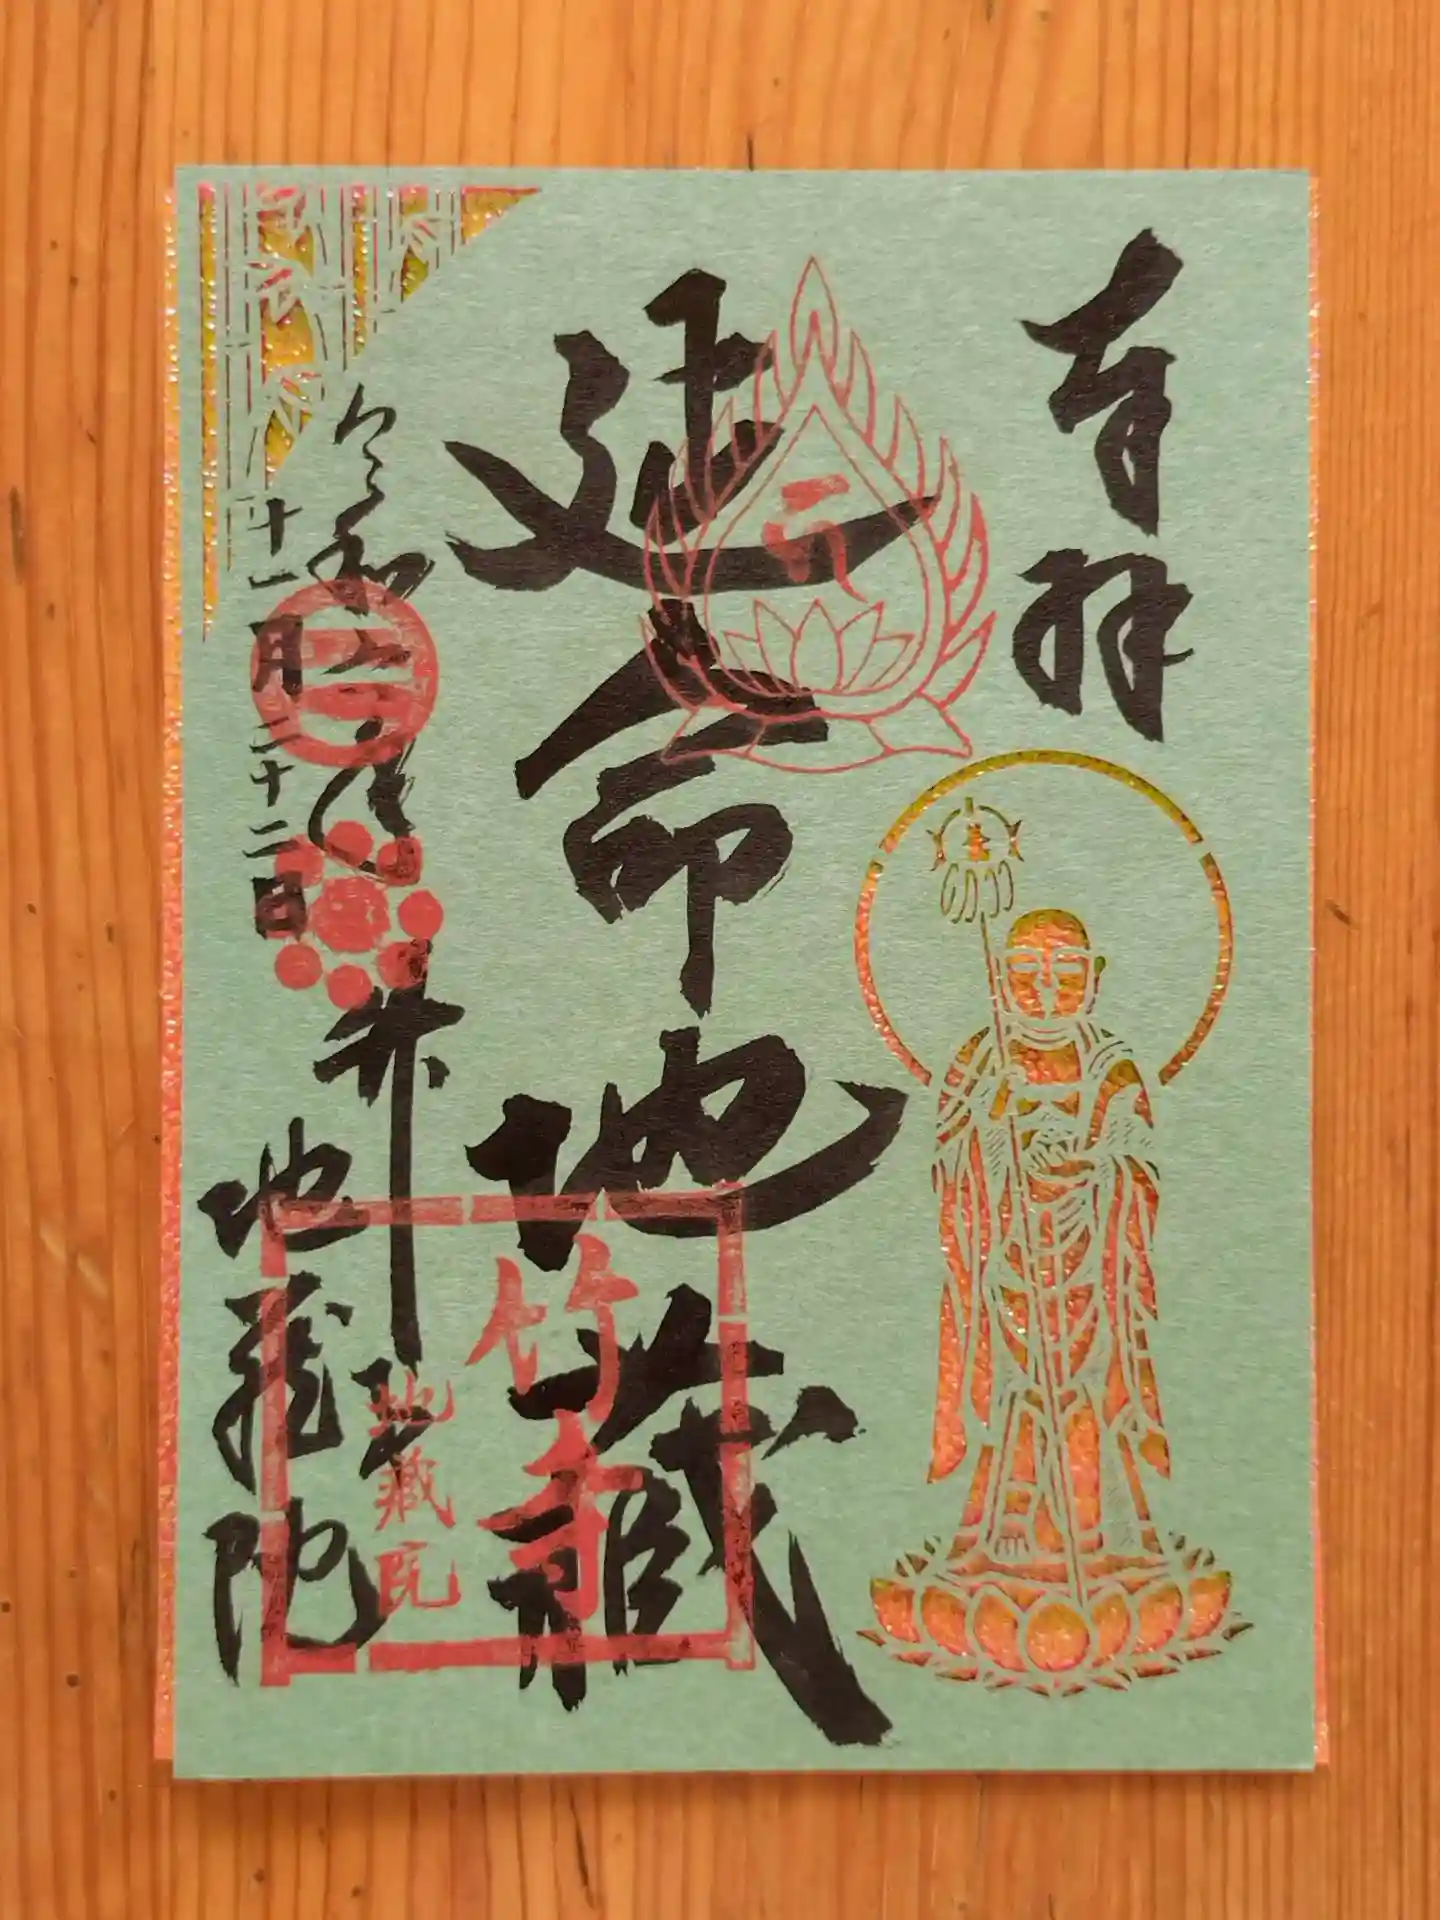 奉拝
延命地蔵
令和
十一月二十二日
地蔵院
竹寺
地蔵院